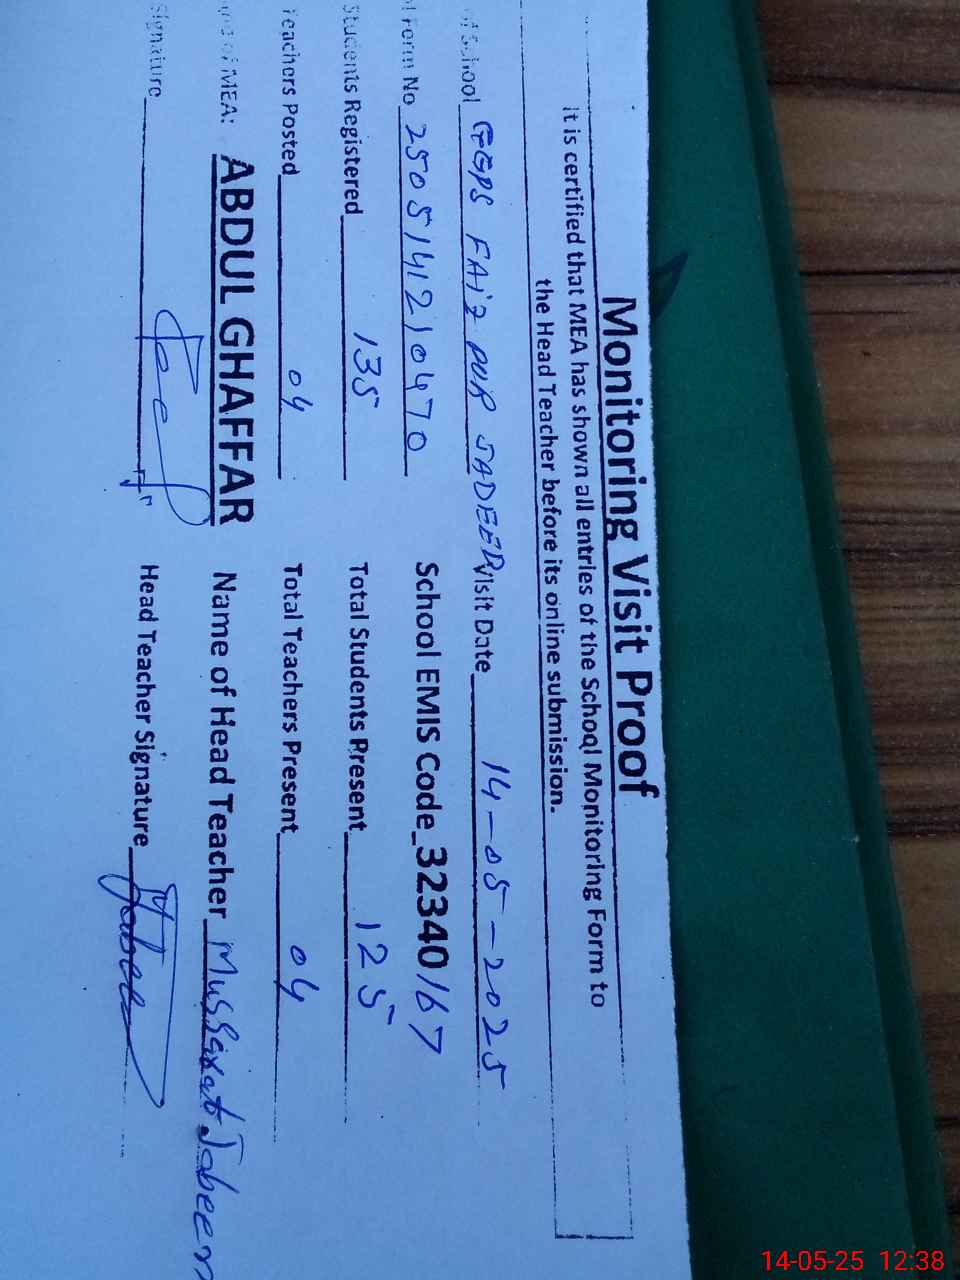 Monitoring Visit Proof
It is certified that MEA has shown all entries of the School Monitoring Form to
the Head Teacher before its online submission.
of School GGPS FAIZ PUR JADEED Visit Date 14-05-2025
Form No 2505141210470 School EMIS Code 32340167
Students Registered 135 Total Students Present 125
Teachers Posted 04 Total Teachers Present 04
of MEA: ABDUL GHAFFAR Name of Head Teacher Mussarat Jabeen
Signature Head Teacher Signature
14-05-25 12:38